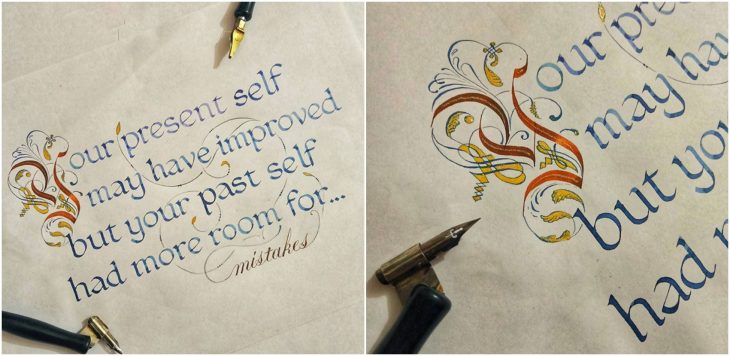 Your present self
may have improved
but your past self
had more room for...
mistakes
Your pres
may hav
but you
had